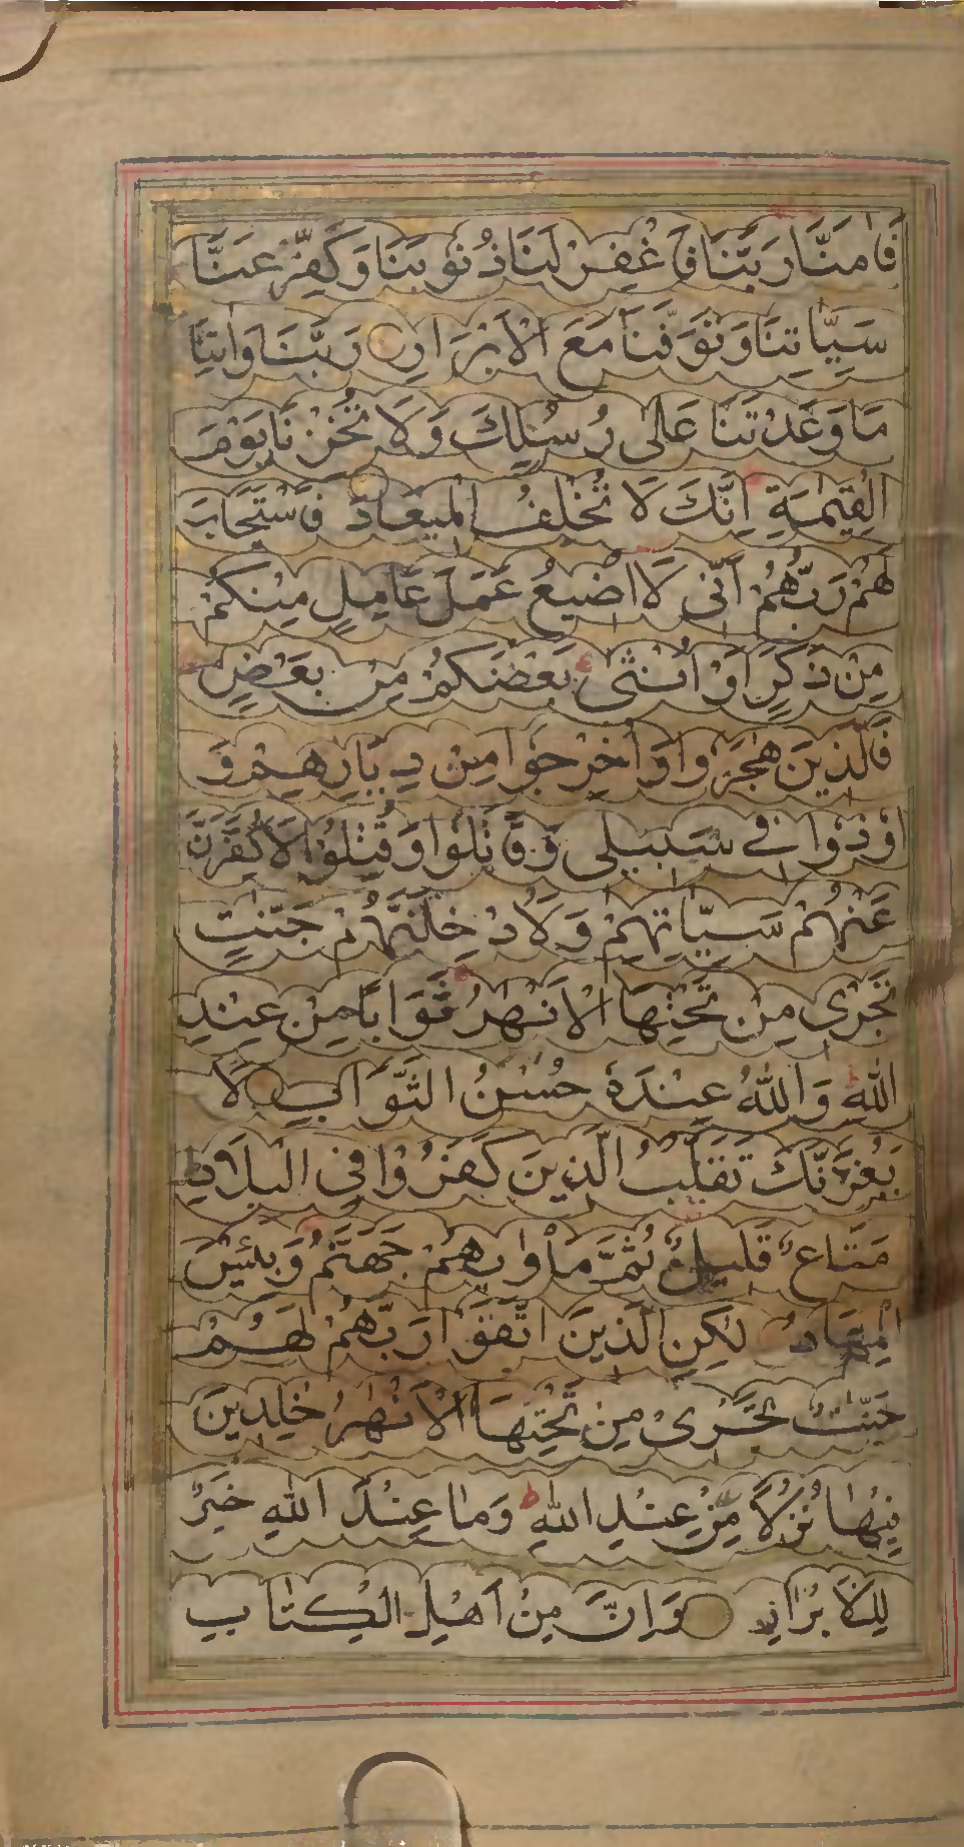 فَاٰمَنَّا رَبَّنَا فَاغْفِرْ لَنَا ذُنُوْبَنَا وَكَفِّرْ عَنَّا
سَيِّاٰتِنَا وَتَوَفَّنَا مَعَ الْاَبْرَارِ رَبَّنَا وَاٰتِنَا
مَا وَعَدْتَنَا عَلٰى رُسُلِكَ وَلَا تُخْزِنَا يَوْمَ
الْقِيٰمَةِ اِنَّكَ لَا تُخْلِفُ الْمِيْعَادَ فَاسْتَجَابَ
لَهُمْ رَبُّهُمْ اَنِّى لَا اُضِيْعُ عَمَلَ عَامِلٍ مِنْكُمْ
مِنْ ذَكَرٍ اَوْ اُنْثٰى بَعْضُكُمْ مِنْ بَعْضٍ
فَالَّذِيْنَ هَاجَرُوْا وَاُخْرِجُوْا مِنْ دِيَارِهِمْ وَ
اُوْذُوْا فِىْ سَبِيْلِى وَقَاتَلُوْا وَقُتِلُوْا لَاُكَفِّرَنَّ
عَنْهُمْ سَيِّاٰتِهِمْ وَلَاُدْخِلَنَّهُمْ جَنّٰتٍ
تَجْرِى مِنْ تَحْتِهَا الْاَنْهٰرُ ثَوَابًا مِنْ عِنْدِ
اللّٰهِ وَاللّٰهُ عِنْدَهُ حُسْنُ الثَّوَابِ لَا
يَغُرَّنَّكَ تَقَلُّبُ الَّذِيْنَ كَفَرُوْا فِى الْبِلَادِ
مَتَاعٌ قَلِيْلٌ ثُمَّ مَاْوٰىهُمْ جَهَنَّمُ وَبِئْسَ
الْمِهَادُ لٰكِنِ الَّذِيْنَ اتَّقَوْا رَبَّهُمْ لَهُمْ
جَنّٰتٌ تَجْرِىْ مِنْ تَحْتِهَا الْاَنْهٰرُ خٰلِدِيْنَ
فِيْهَا نُزُلًا مِنْ عِنْدِ اللّٰهِ وَمَا عِنْدَ اللّٰهِ خَيْرٌ
لِلْاَبْرَارِ وَاِنَّ مِنْ اَهْلِ الْكِتٰابِ